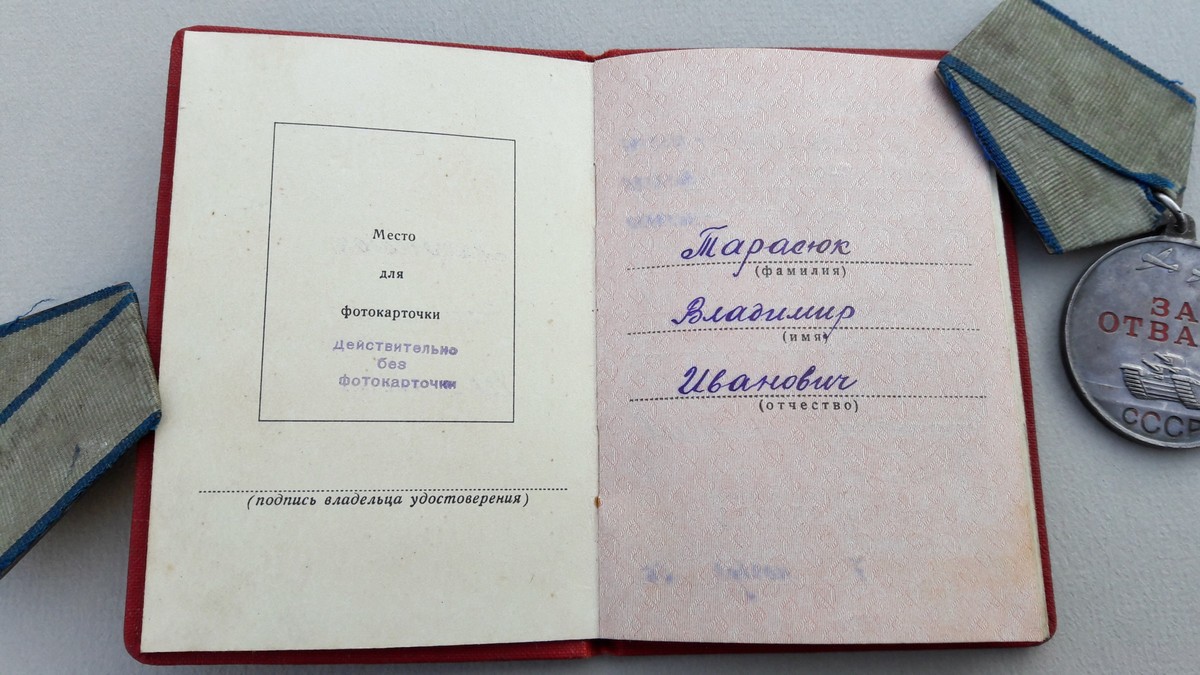 Место
для
фотокарточки
действительно
без
фотокарточки
(подпись владельца удостоверения)
Тарасюк
(фамилия)
Владимир
(имя)
Иванович
(отчество)
ЗА
ОТВА
СССР